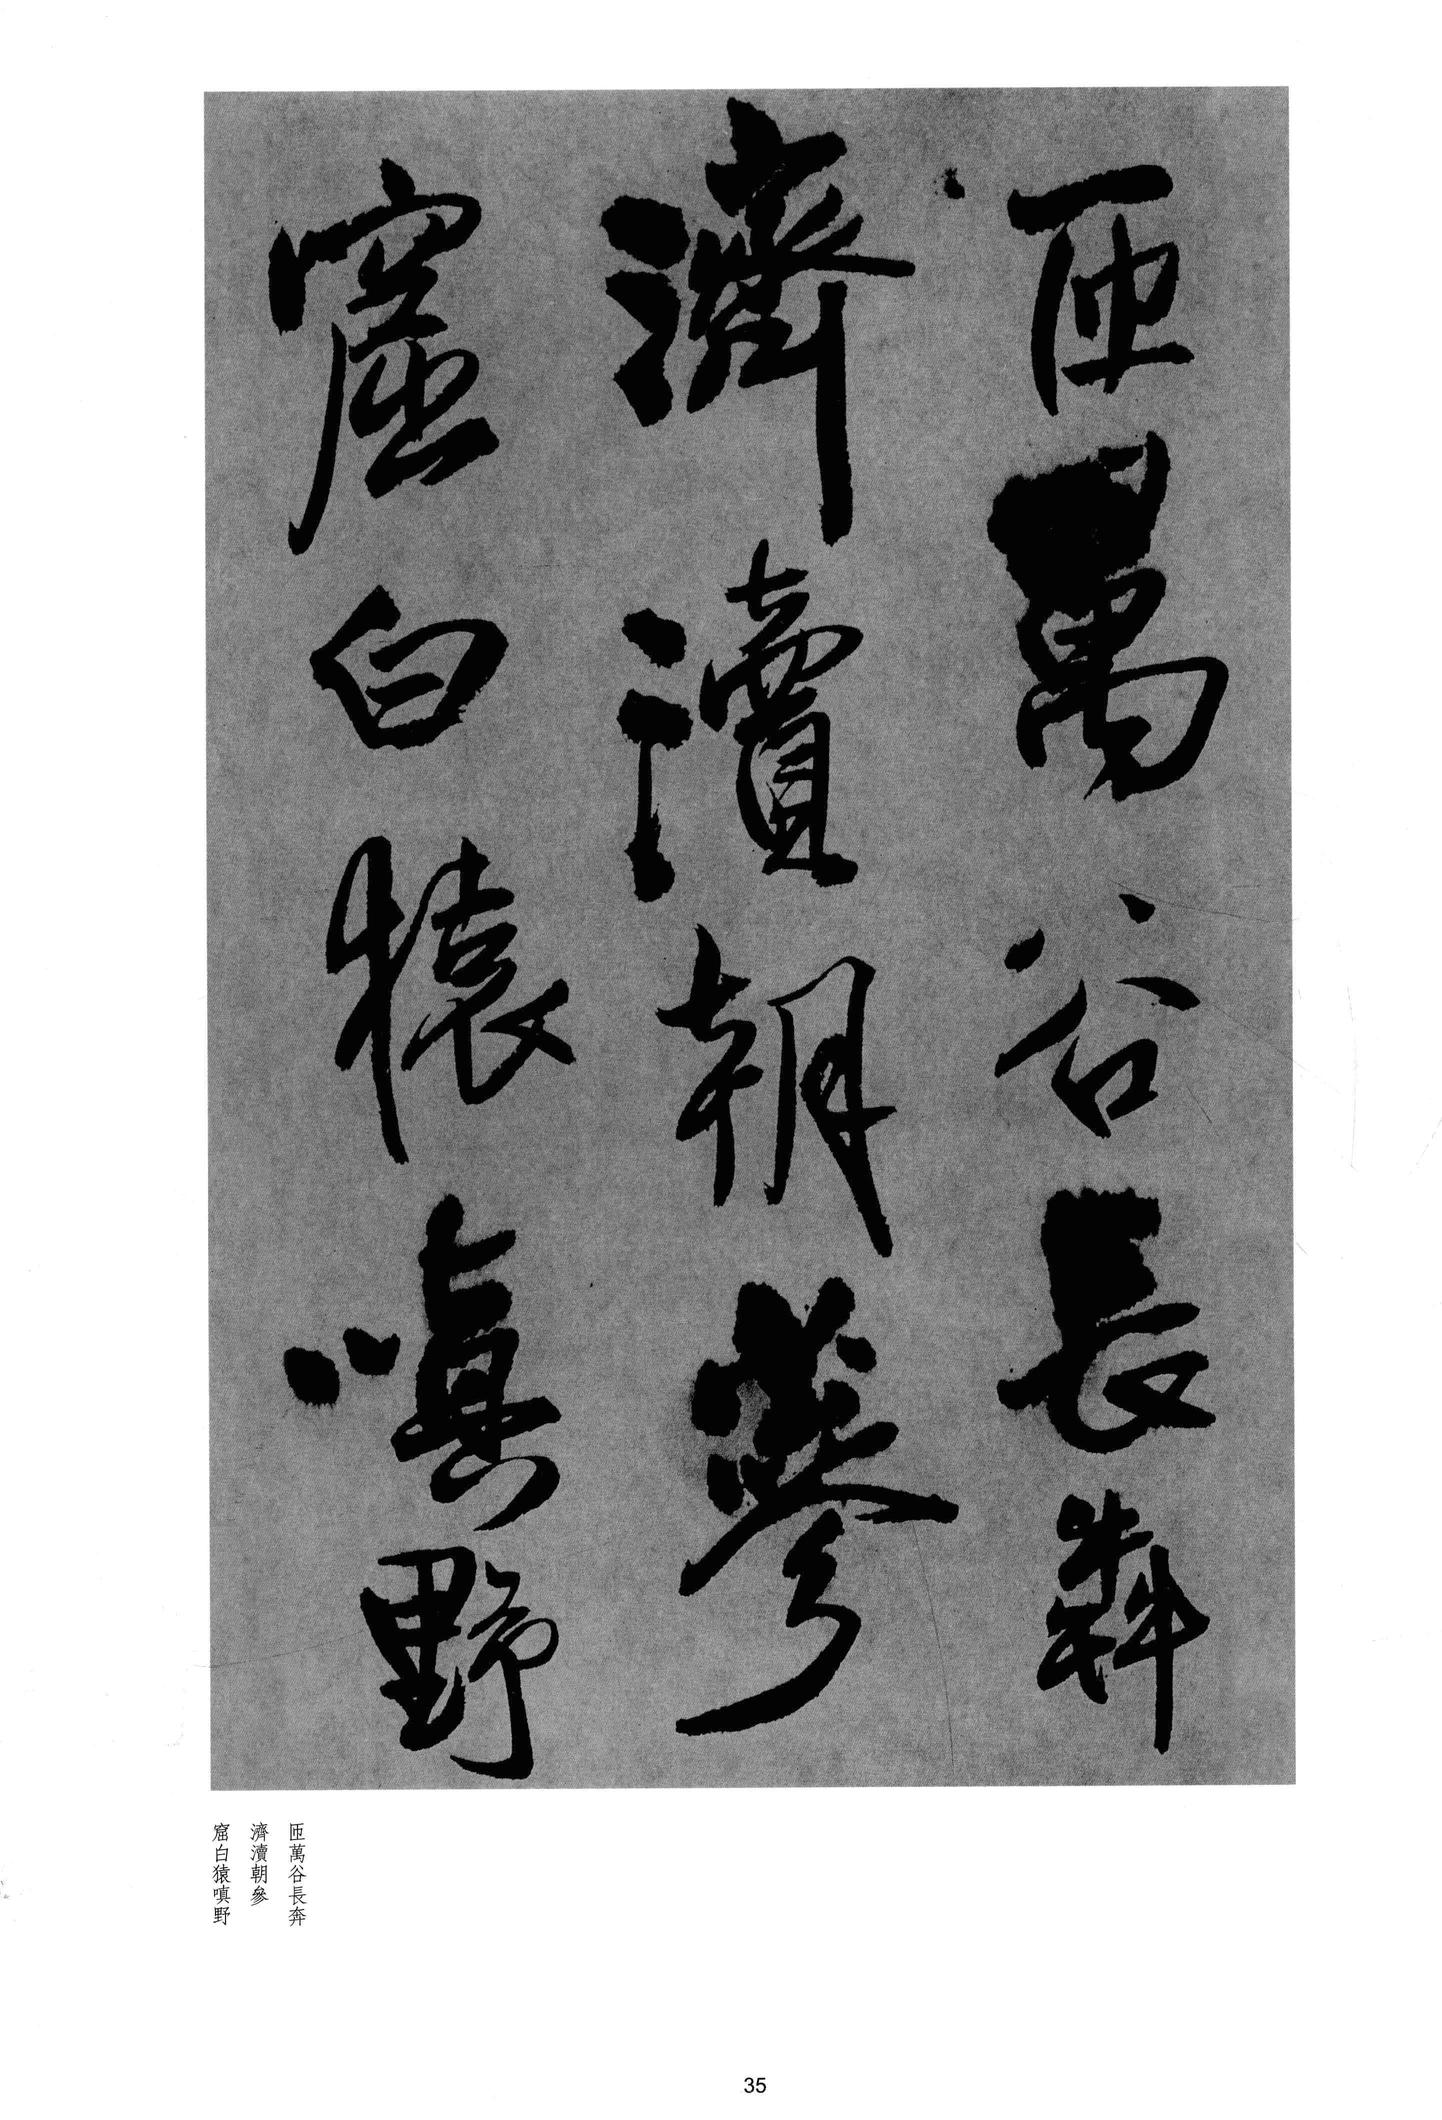 匝萬谷長奔
濟瀆朝參
窟白猿嗔野
匝萬谷長奔
濟瀆朝參
窟白猿嗔野
35